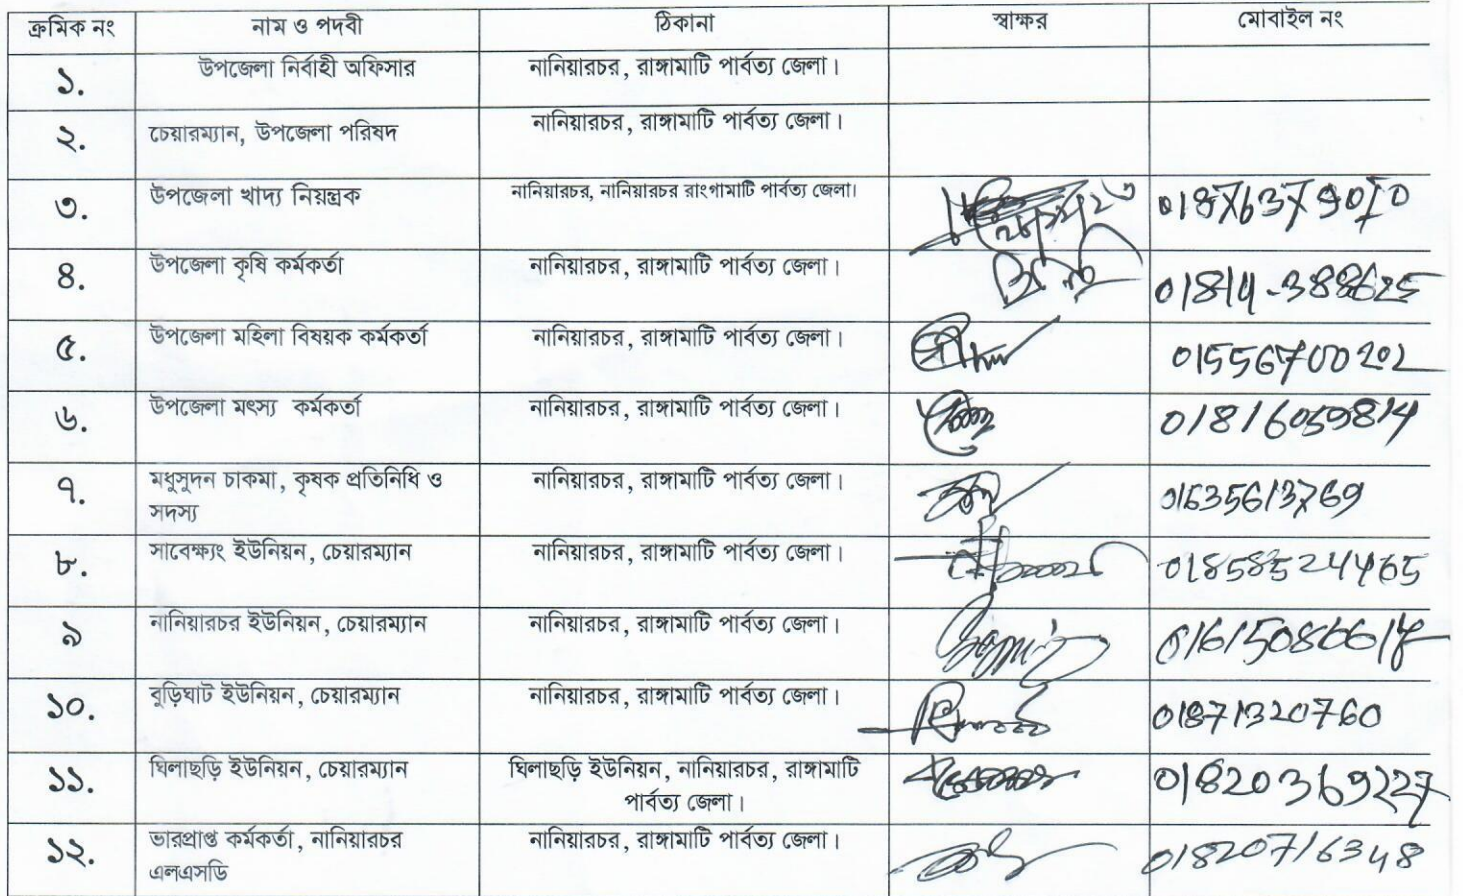 ক্রমিক নং নাম ও পদবী ঠিকানা স্বাক্ষর মোবাইল নং
১. উপজেলা নির্বাহী অফিসার নানিয়ারচর, রাঙ্গামাটি পার্বত্য জেলা।
২. চেয়ারম্যান, উপজেলা পরিষদ নানিয়ারচর, রাঙ্গামাটি পার্বত্য জেলা।
৩. উপজেলা খাদ্য নিয়ন্ত্রক নানিয়ারচর, নানিয়ারচর রাংগামাটি পার্বত্য জেলা।
৪. উপজেলা কৃষি কর্মকর্তা নানিয়ারচর, রাঙ্গামাটি পার্বত্য জেলা। 01814-388625
৫. উপজেলা মহিলা বিষয়ক কর্মকর্তা নানিয়ারচর, রাঙ্গামাটি পার্বত্য জেলা। 01556700202
৬. উপজেলা মৎস্য কর্মকর্তা নানিয়ারচর, রাঙ্গামাটি পার্বত্য জেলা। 01816059814
৭. মধুসুদন চাকমা, কৃষক প্রতিনিধি ও নানিয়ারচর, রাঙ্গামাটি পার্বত্য জেলা। 01635613769
সদস্য
৮. সাবেক্ষ্যং ইউনিয়ন, চেয়ারম্যান নানিয়ারচর, রাঙ্গামাটি পার্বত্য জেলা। 01858524465
৯ নানিয়ারচর ইউনিয়ন, চেয়ারম্যান নানিয়ারচর, রাঙ্গামাটি পার্বত্য জেলা।
১০. বুড়িঘাট ইউনিয়ন, চেয়ারম্যান নানিয়ারচর, রাঙ্গামাটি পার্বত্য জেলা। 01871320760
১১. ঘিলাছড়ি ইউনিয়ন, চেয়ারম্যান ঘিলাছড়ি ইউনিয়ন, নানিয়ারচর, রাঙ্গামাটি 01820369227
পার্বত্য জেলা।
১২. ভারপ্রাপ্ত কর্মকর্তা, নানিয়ারচর নানিয়ারচর, রাঙ্গামাটি পার্বত্য জেলা। 01820716348
এলএসডি